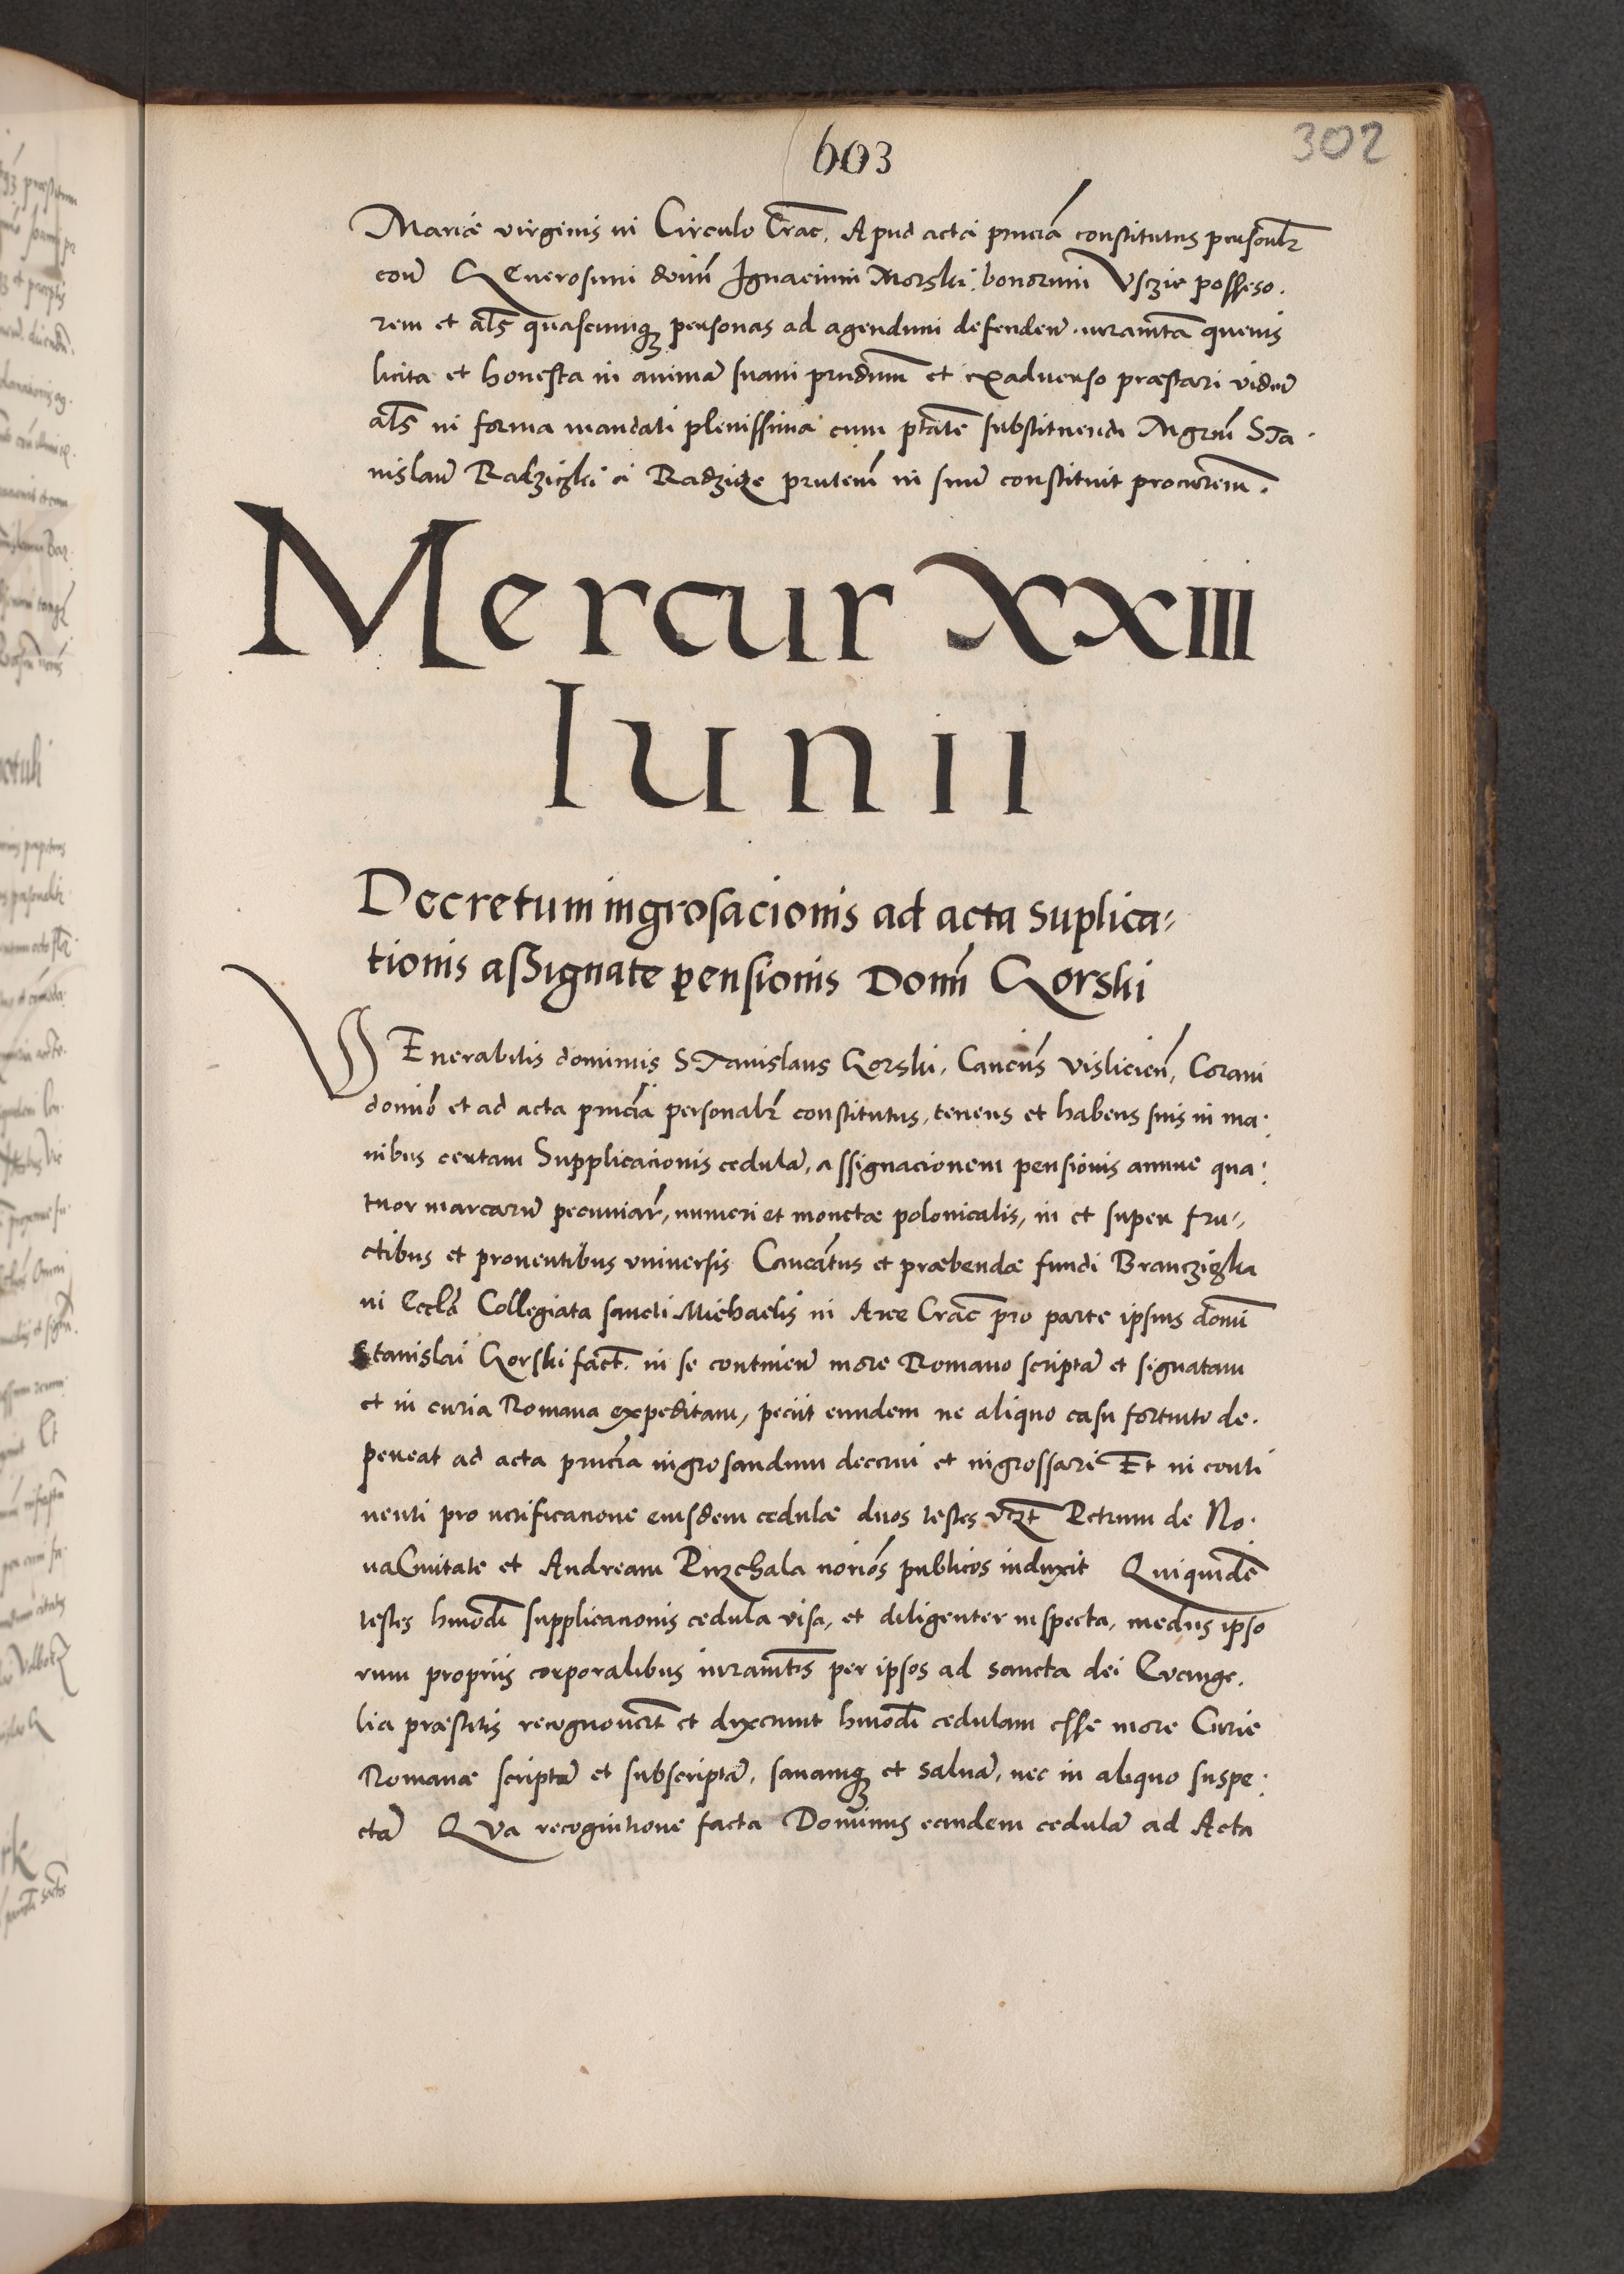 603
302
Mariæ virginis in Circulo Crac̅. Apud acta pn̅cia constitutus personalr̅
con̅ Generosum domi̅n Ignacium Morski. bonorum Vszie possesso.
rem et al̅s quascumqꝫ personas ad agendum defenden̅. iuramta̅ quevis
licita et honesta in anima̅ suam pn̅dum et exadverso præstari viden̅
al̅s in forma mandati plenissima cum p̅tate substituendi Mgrm̅ Sta.
nislau̅ Radziczki a Radzicze pn̅tem̅ in suu̅ constituit procu̅rem.
Mercur XXIII
Iunii
Decretum ingrosacionis ad acta Suplica⸗
tionis assignate pensionis Domi̅ Gorski
VEnerabilis dominus STanislaus Gorski, Canc̅us Vislicien̅, Coram
domi̅o et ad acta pn̅cia personalr̅ constitutus, tenens et habens suis in ma:
nibus certam Supplicacionis cedula̅, assignacionem pensionis annue qua:
tuor marcaru̅ pecuniar̅, numeri et monetæ polonicalis, in et super fru⸗,
ctibus et proventibus universis Canca̅tus et præbendæ fundi Branczigka
in Eccl̅a Collegiata sancti Michaelis in Arce Crac̅ pro parte ipsius domi̅
Stanislai Gorski fact̅. in se continen̅ more Romano scripta̅ et signatam
et in curia Romana expeditam, peciit eundem ne aliquo casu fortuito de.
pereat ad acta pn̅cia ingrosandum decerni et ingrossari Et in conti
nenti pro verificacione eiusdem cedulæ duos testes vcz̅t Petrum de No.
vaCivitate et Andream Przechala norio̅s publicos induxit Quiquide̅
testes hmo̅di supplicacionis cedula visa, et diligenter inspecta, mediis ipso
rum propriis corporalibus iuramt̅is per ipsos ad sancta dei Evange.
lia præstitis recognover̅t et dixerunt hmo̅di cedulam esse more Curie
Romanæ scripta̅ et subscripta̅, sanamqꝫ et salva̅, nec in aliquo suspe:
cta̅ QVa recognitione facta Dominus eandem cedula̅ ad Acta